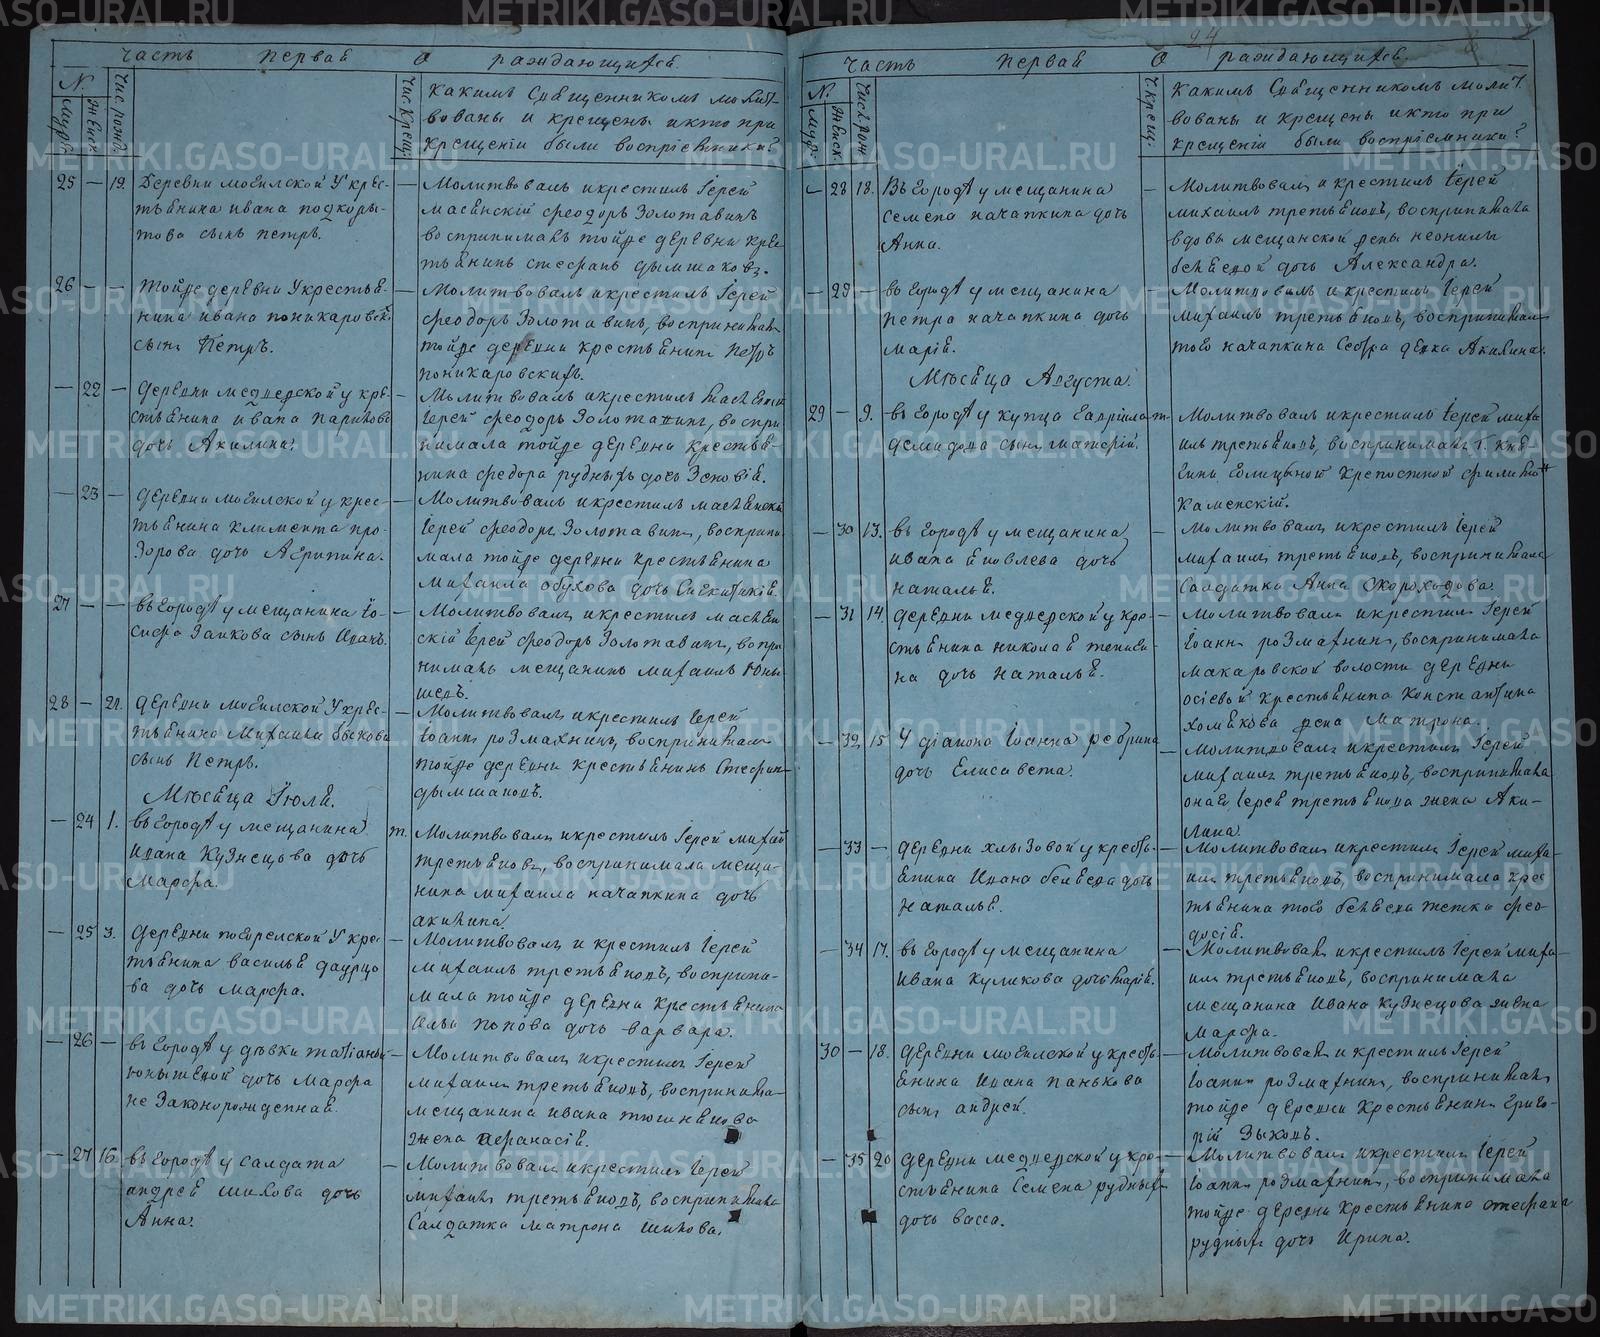 Часть первая о раждающихся.
N.
Муж:
Женск
Чис. рожд.
Чис. крещ:
Какимъ священникомъ молит-
вованы и крещены и кто при
крещеніи были воспріемники?
25 — 19. Деревни могилской у крес-
тьянина ивана подкоры-
това сынъ петръ.
— Молитвовалъ и крестилъ Іерей
масленскій феодоръ Золотавинъ
воспринималъ тойже деревни крес
тьянинъ стефанъ дымшаковъ.
26 — — тойже деревни у крестья-
нина ивана поникаровск.
сынъ Петръ.
— Молитвовалъ и крестилъ Іерей
феодоръ Золотавинъ, воспринималъ
тойже деревни крестьянинъ петръ
поникаровскихъ.
— 22 — деревни медведской у кре-
стьянина ивана
дочь Акилина.
— Молитвовалъ и крестилъ масленской
Іерей феодоръ Золотавинъ, воспри
нимала тойже деревни крестья-
нина федора рудныхъ дочь Зеновія.
— 23 — деревни могилской у крес-
тьянина климента про-
зорова дочь Агрипина.
— Молитвовалъ и крестилъ масленской
Іерей феодоръ Золотавинъ, восприни
мала тойже деревни крестьянина
михаила обухова дочь
27 — — въ городѣ у мещанина Іо-
сифа Заикова сынъ
— Молитвовалъ и крестилъ маслен
скій Іерей феодоръ Золотавинъ, воспри
нималъ мещанинъ михаилъ Юны-
шевъ.
28 — 21. деревни могилской у крес-
тьянина михаила быкова
сынъ Петръ.
— Молитвовалъ и крестилъ Іерей
Іоаннъ розмахнинъ, воспринималъ
тойже деревни крестьянинъ Стефанъ
дымшаковъ.
Мѣсяца Іюля.
— 24 1. въ городѣ у мещанина
ивана Кузнецова дочь
Марфа.
т. Молитвовалъ и крестилъ Іерей михаи
третьяковъ, воспринимала меща-
нина михаила качапкина дочь
акилина.
— 25 3. деревни погорелской у крес
тьянина василья даурцо
ва дочь марфа.
— Молитвовалъ и крестилъ Іерей
михаилъ третьяковъ, восприни-
мала тойже деревни крестьянина
Ильи попова дочь варвара.
— 26 — въ городѣ у дѣвки татіаны
юнышевой дочь Марфа
не законорожденная.
— Молитвовалъ и крестилъ Іерей
михаилъ третьяковъ, воспринима-
мещанина ивана тюшнякова
жена афанасія.
— 27 16. въ городѣ у салдата
андрея шихова дочь
Анна.
— Молитвовалъ и крестилъ Іерей
михаилъ третьяковъ, воспринимала
Салдатка матрона шихова.
24
Часть первая о раждающихся.
N.
Муж:
Женск.
Числ. рож
Ч. крещ:
Какимъ священникомъ молит.
вованы и крещены и кто при
крещеніи были воспріемники?
— 28 18. Въ городѣ у мещанина
семена качапкина дочь
Анна.
— Молитвовалъ и крестилъ Іерей
михаилъ третьяковъ, воспринимала
вдовы мещанской жены неонилы
беляевой дочь Александра.
— 29 — въ городѣ у мещанина
петра качапкина дочь
марія.
— Молитвовалъ и крестилъ Іерей
михаилъ третьяковъ, воспринимала
того качапкина сестра девка Акилина.
Мѣсяца Августа.
29 — 9. въ городѣ у купца гавріила
демидова сынъ матфей.
т. Молитвовалъ и крестилъ Іерей миха
илъ третьяковъ, воспринималъ г. кня
гини голицыной крепостной филипъ
Каменскій.
— 30 13. въ городѣ у мещанина
ивана яковлева дочь
наталья.
— Молитвовалъ и крестилъ Іерей
михаилъ третьяковъ, воспринимала
Салдатка Анна Скороходова.
— 31 14. деревни медведской у кре-
стьянина николая
на дочь наталья.
— Молитвовалъ и крестилъ Іерей
Іоаннъ розмахнинъ, воспринимала
макаровской волости деревни
осіевой крестьянина константина
хомякова жена матрона.
— 32 15 У діакона Іоанна ребрина
дочь Елисавета.
— Молитвовалъ и крестилъ Іерей
михаилъ третьяковъ, воспринимала
онаго Іерея третьякова жена Аки-
лина.
— 33 — деревни хлызовой у кресть-
янина ивана беляева дочь
наталья.
— Молитвовалъ и крестилъ Іерей миха-
илъ третьяковъ, воспринимала крес
тьянина того беляева тетка фео-
досія.
— 34 17. въ городѣ у мещанина
ивана куликова дочь марія.
— Молитвовалъ и крестилъ Іерей миха-
илъ третьяковъ, воспринимала
мещанина ивана кузнецова жена
марфа.
30 — 18. деревни могилской у кресть-
янина ивана панькова
сынъ андрей.
— Молитвовалъ и крестилъ Іерей
Іоаннъ розмахнинъ, воспринималъ
тойже деревни крестьянинъ григо-
рій Зыковъ.
— 35 20 деревни медведской у кре-
стьянина Семена рудныхъ
дочь васса.
— Молитвовалъ и крестилъ Іерей
Іоаннъ розмахнинъ, воспринимала
тойже деревни крестьянина стефана
рудныхъ дочь Ирина.
METRIKI.GASO-URAL.RU